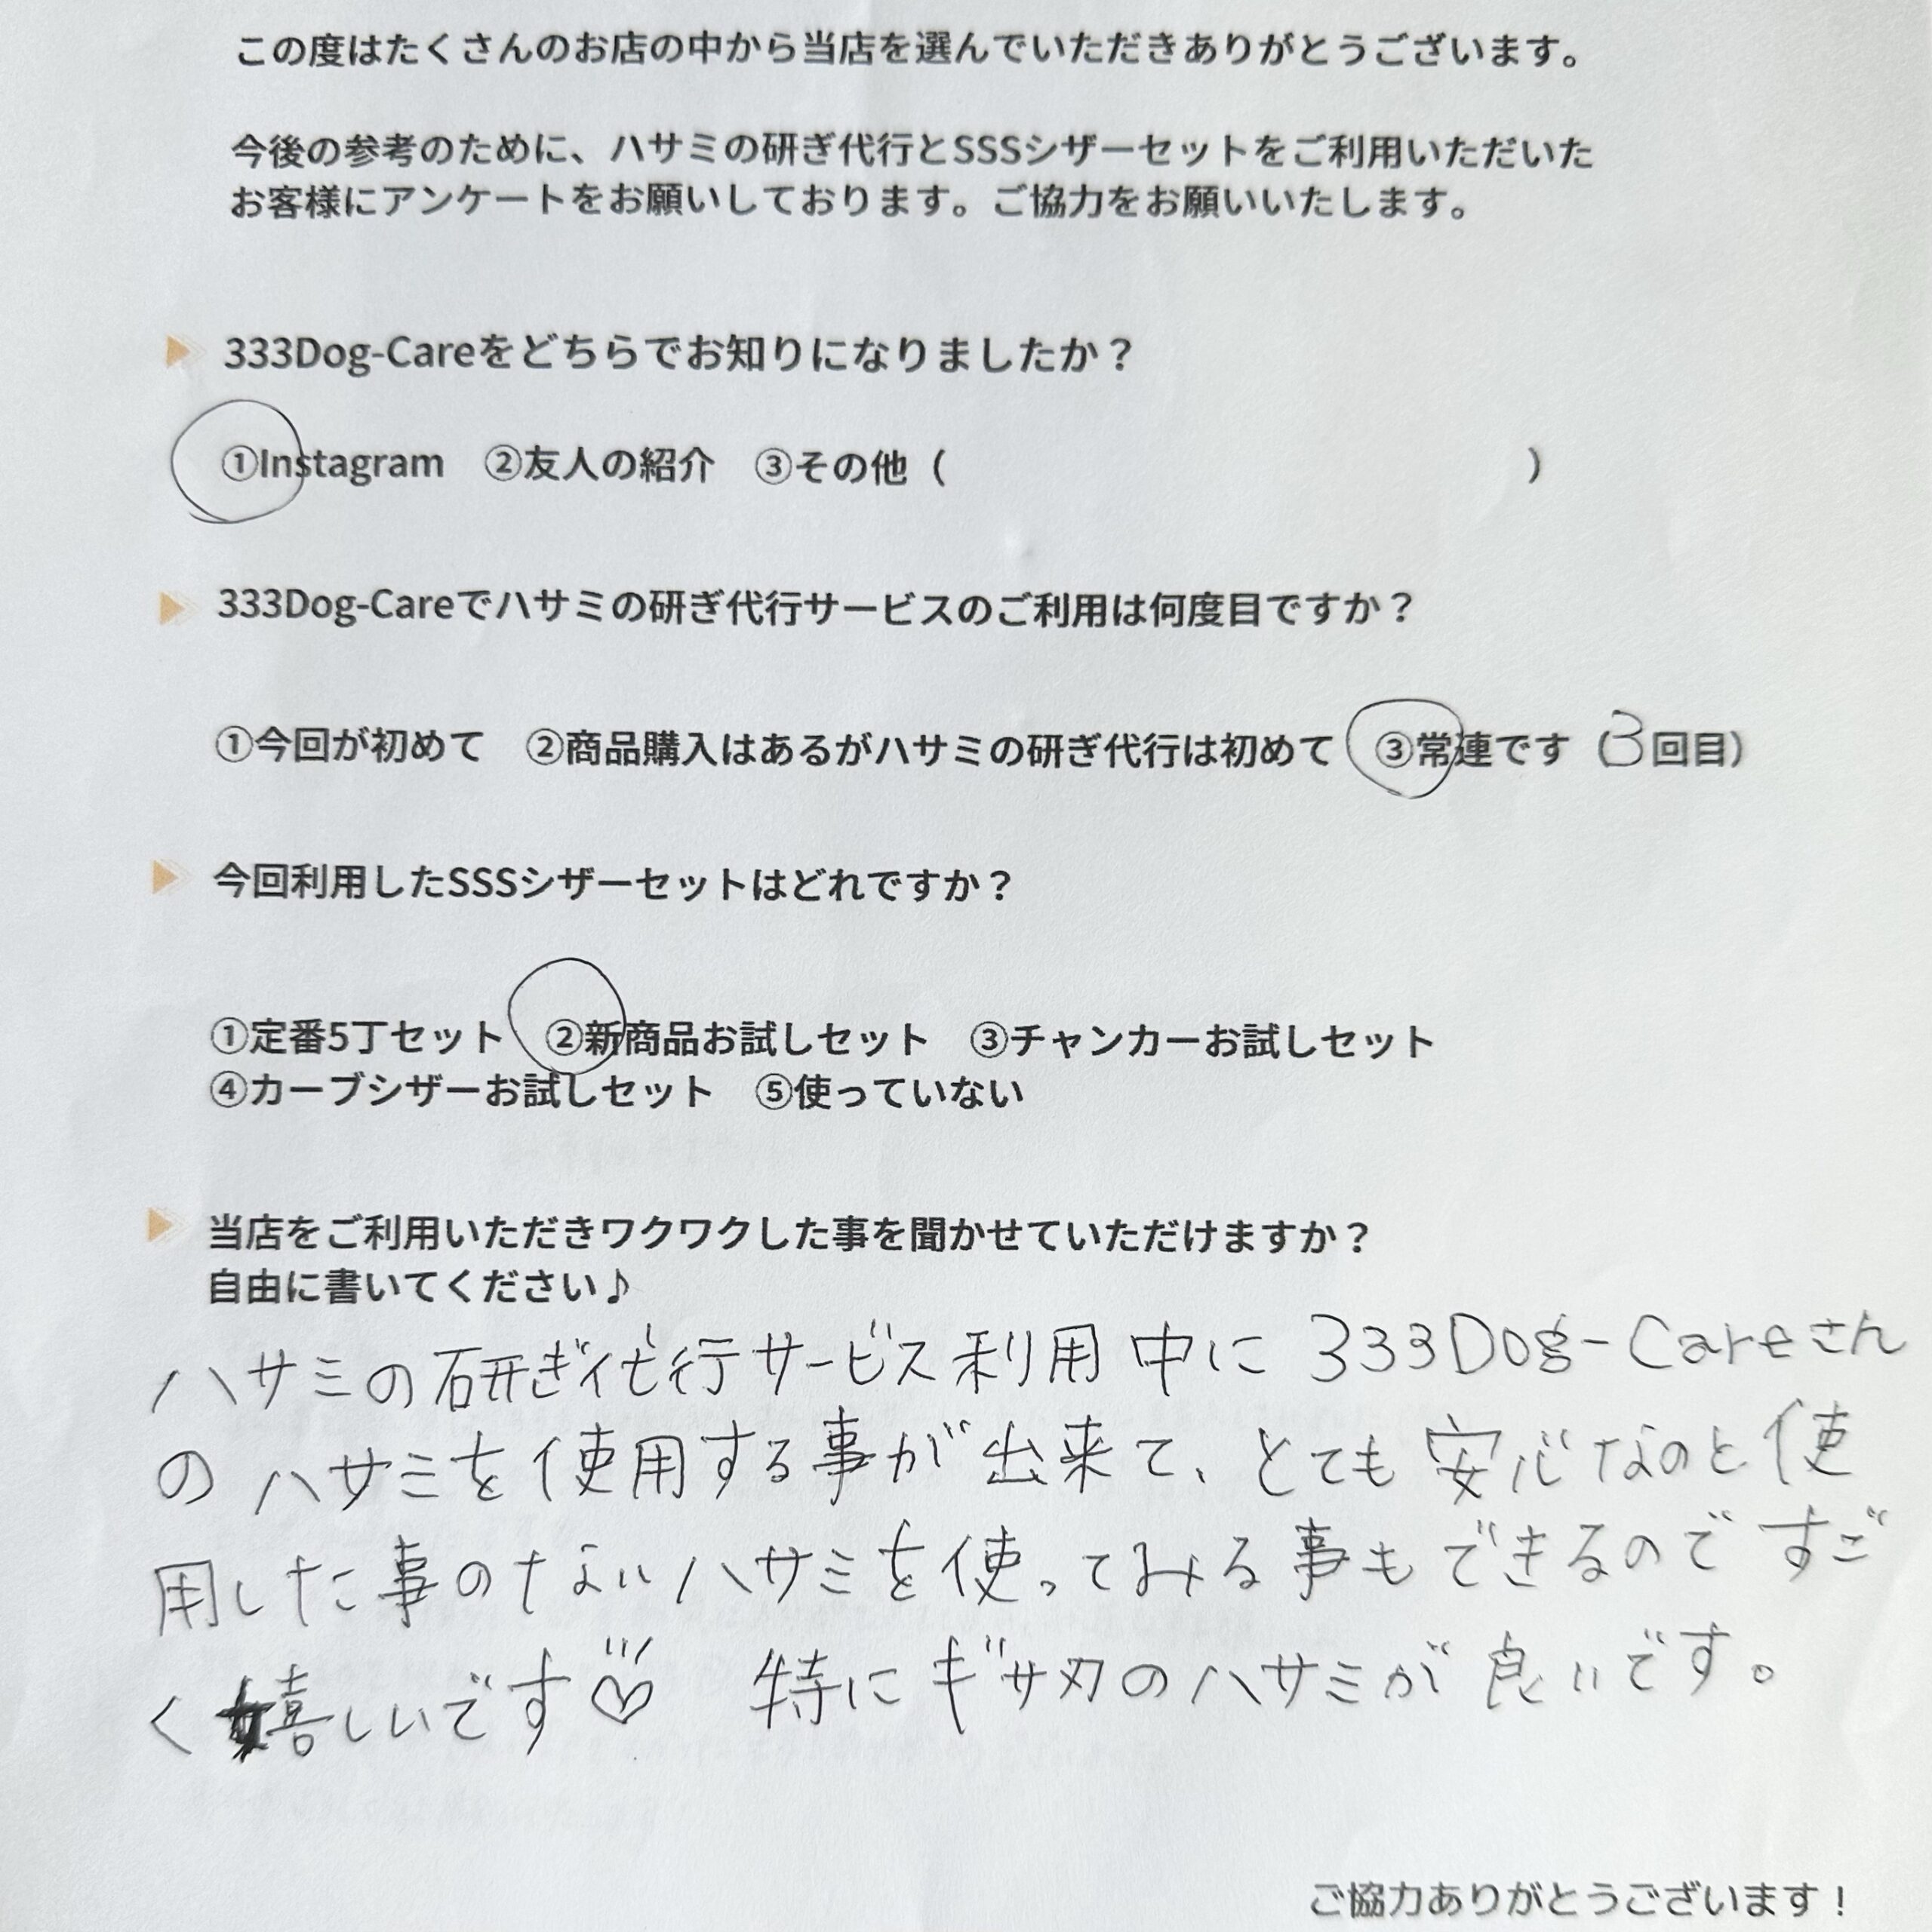 この度はたくさんのお店の中から当店を選んでいただきありがとうございます。
今後の参考のために、ハサミの研ぎ代行とSSSシザーセットをご利用いただいた
お客様にアンケートをお願いしております。ご協力をお願いいたします。
333Dog-Careをどちらでお知りになりましたか？
①Instagram　②友人の紹介　③その他（　　　　　　　　）
333Dog-Careでハサミの研ぎ代行サービスのご利用は何度目ですか？
①今回が初めて　②商品購入はあるがハサミの研ぎ代行は初めて　③常連です（3回目）
今回利用したSSSシザーセットはどれですか？
①定番5丁セット　②新商品お試しセット　③チャンカーお試しセット
④カーブシザーお試しセット　⑤使っていない
当店をご利用いただきワクワクした事を聞かせていただけますか？
自由に書いてください♪
ハサミの研ぎ代行サービス利用中に333Dog-Careさん
のハサミを使用する事が出来て、とても安心なのと使
用した事のないハサミを使ってみる事もできるのですご
く嬉しいです♡　特にギザ刃のハサミが良いです。
ご協力ありがとうございます！